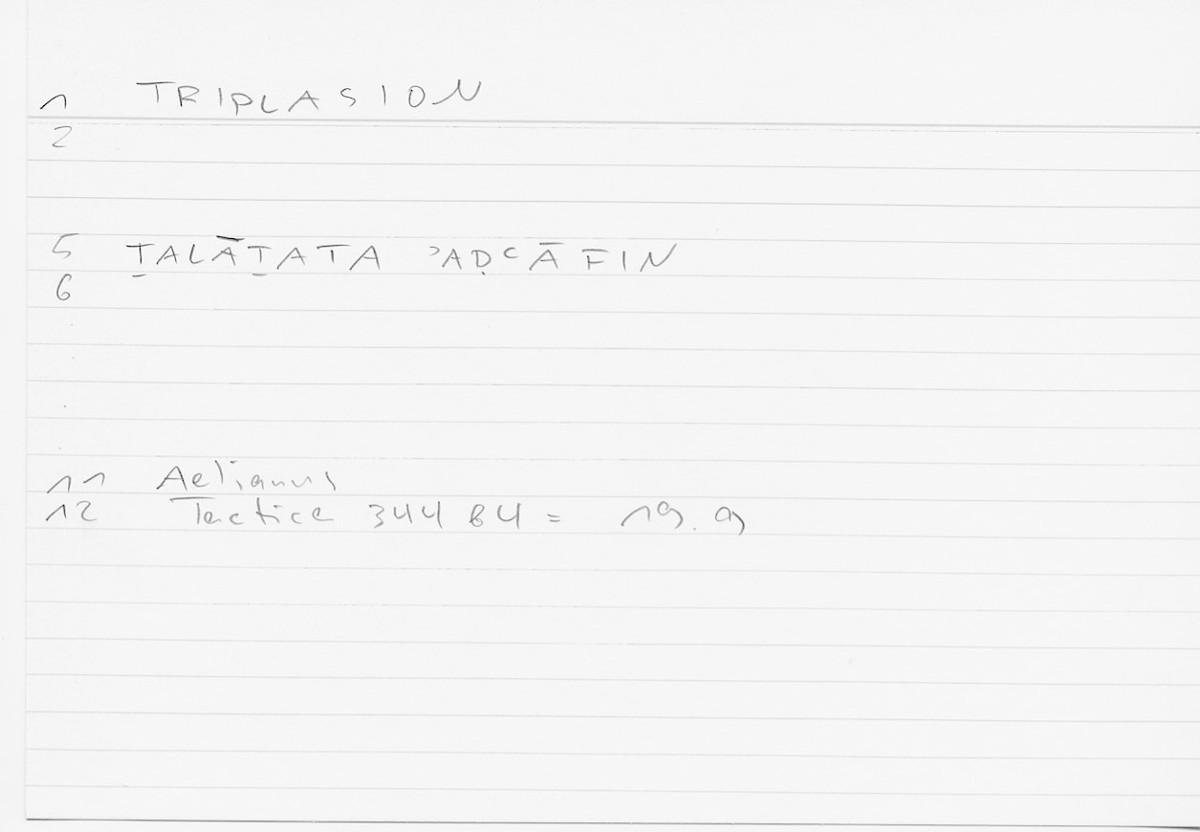 1 TRIPLASION
2
5 ṮALĀṮATA ʾAḌʿĀFIN
6
11 Aelianus
12 Tactica 344 64 = 19.9